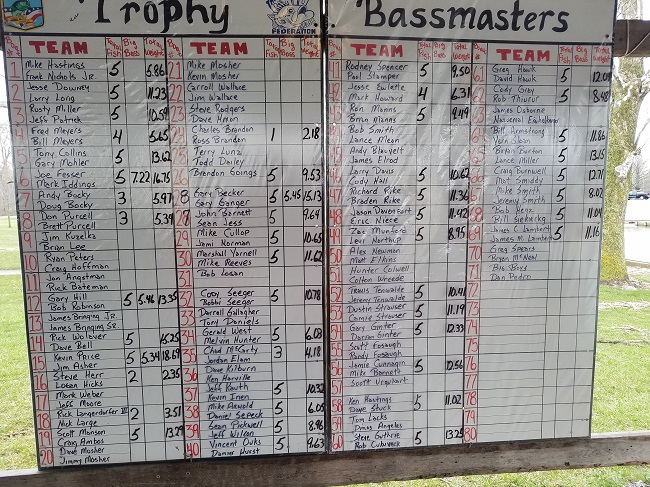 Trophy Bassmasters
FEDERATION
TEAM Total Fish Big Bass Total Weight
1 Mike Hastings 5 5.86
Frank Nichols Jr.
2 Jesse Downey 5 11.23
Larry Long
3 Rusty Miller 5 10.59
Jeff Patrick
4 Fred Meyers 4 5.65
Bill Meyers
5 Tony Collins 5 13.62
Gary Mohler
6 Joe Fesser 5 7.22 16.75
Mark Iddings
7 Andy Bocky 3 5.97
Doug Bocky
8 Don Purcell 3 5.39
Brett Purcell
9 Jim Kuzelka
Brian Lee
10 Ryan Peters
Craig Hoffman
11 Jon Angstman
Rick Bateman
12 Gary Hill 5 5.46 13.35
Bob Robinson
13 James Bringing Jr.
14 James Bringing Sr.
Rick Wolover 5 15.25
Dave Bell
15 Kevin Price 5 5.34 18.69
Jim Asher
16 Steve Herr 2 2.35
Logan Hicks
17 Mark Weber
Jeff Moore
18 Rick Langerdorfer III 2 3.51
Nick Large
19 Scott Monson 5 13.29
Craig Ambos
20 Dave Mosher
Jimmy Mosher
TEAM Total Fish Big Bass Total Weight
21 Mike Mosher
Kevin Mosher
22 Carroll Wallace
Jim Wallace
23 Steve Rodgers
Dave Hymon
24 Charles Brandon 1 2.18
Ross Brandon
25 Terry Lunz
Todd Dailey
26 Brandon Goings 5 9.53
28 Gary Becker 5 5.45 15.13
Gary Ganger
John Barnett 5 9.64
Sean Jess
29 Mike Cullop 5 10.65
Jami Norman
30 Marshall Yarnell 5 11.62
Mike Reeves
31 Bob Logan
32 Cody Seeger 5 10.78
Bobbi Seeger
33 Darrall Gallagher
Tony Daniels
34 Gerald West 5 6.08
Melvin Hunter
35 Chad McCarty 3 4.18
Jordan Elam
36 Dave Kilburn
Ken Harville
37 Jeff Routh 5 10.32
Kevin Inen
38 Mike Arnold 5 6.05
Daniel Sefeck
39 Sean Pickwell 5 8.96
Jeff Wilson
40 Vincent Ouks 5 9.63
Daniel Hurst
TEAM Total Fish Big Bass Total Weight
Rodney Spencer 5 9.50
Paul Stamper
Jesse Ewierle 4 6.31
Mark Howard
Ron Manns 5 9.49
Brian Manns
Bob Smith
Lance Mclean
45 Andy Blauvelt
James Elrod
46 Larry Davis 5 10.62
Cody Hall
47 Richard Rike 5 11.36
Braden Rike
48 Jason Davenport 5 11.42
Eric Niece
49 Zac Munford 5 8.95
Levi Northup
50 Alex Newman
Matt Elkins
51 Hunter Colwell
Colton Wreede
52 Travis Tenwalde 5 10.41
Jeremy Tenwalde
53 Dustin Strouser 5 11.19
Jamie Strouser
54 Gary Ginter 5 10.33
Darran Ginter
55 Scott Fosaugh
Randy Fosaugh
56 Jamie Cunnagin 5 10.56
Mike Bennett
57 Scott Urquhart
58 Ken Hastings 5 11.02
Dave Stuck
59 Tom Locks
Doug Angelos
60 Steve Guthrie 5 13.25
Bob Culwreck
TEAM Total Fish Big Bass Total Weight
61 Greg Hawk 5 12.09
David Hawk
62 Cody Gray 5 8.48
Rob Thivur
James Osborne
Nathanial Eichelberger
Bill Armstrong 5 11.86
Vern Sloan
Bryan Burton 5 13.15
Lance Miller
Craig Burnwell 5 12.71
Mat Smiddy
Mike Smith 5 8.02
Jeremy Smith
68 Bob Henz 5 11.09
Bill Siekierka
69 James C Lambert 5 11.16
James M. Lambert
70 Greg Spears
Bryan McNeal
71 Big Boys
Dan Pedro
72
73
74
75
76
77
78
79
80